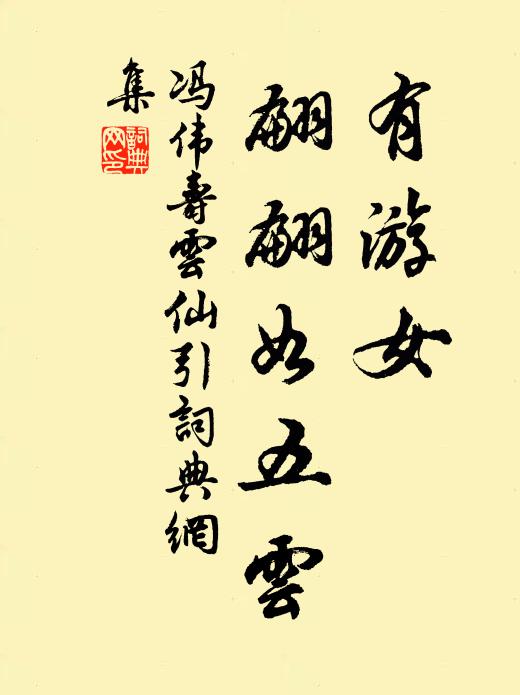 有游女
翩翩如五雲
冯伟壽雲仙引詞典網
集
詞典
网印